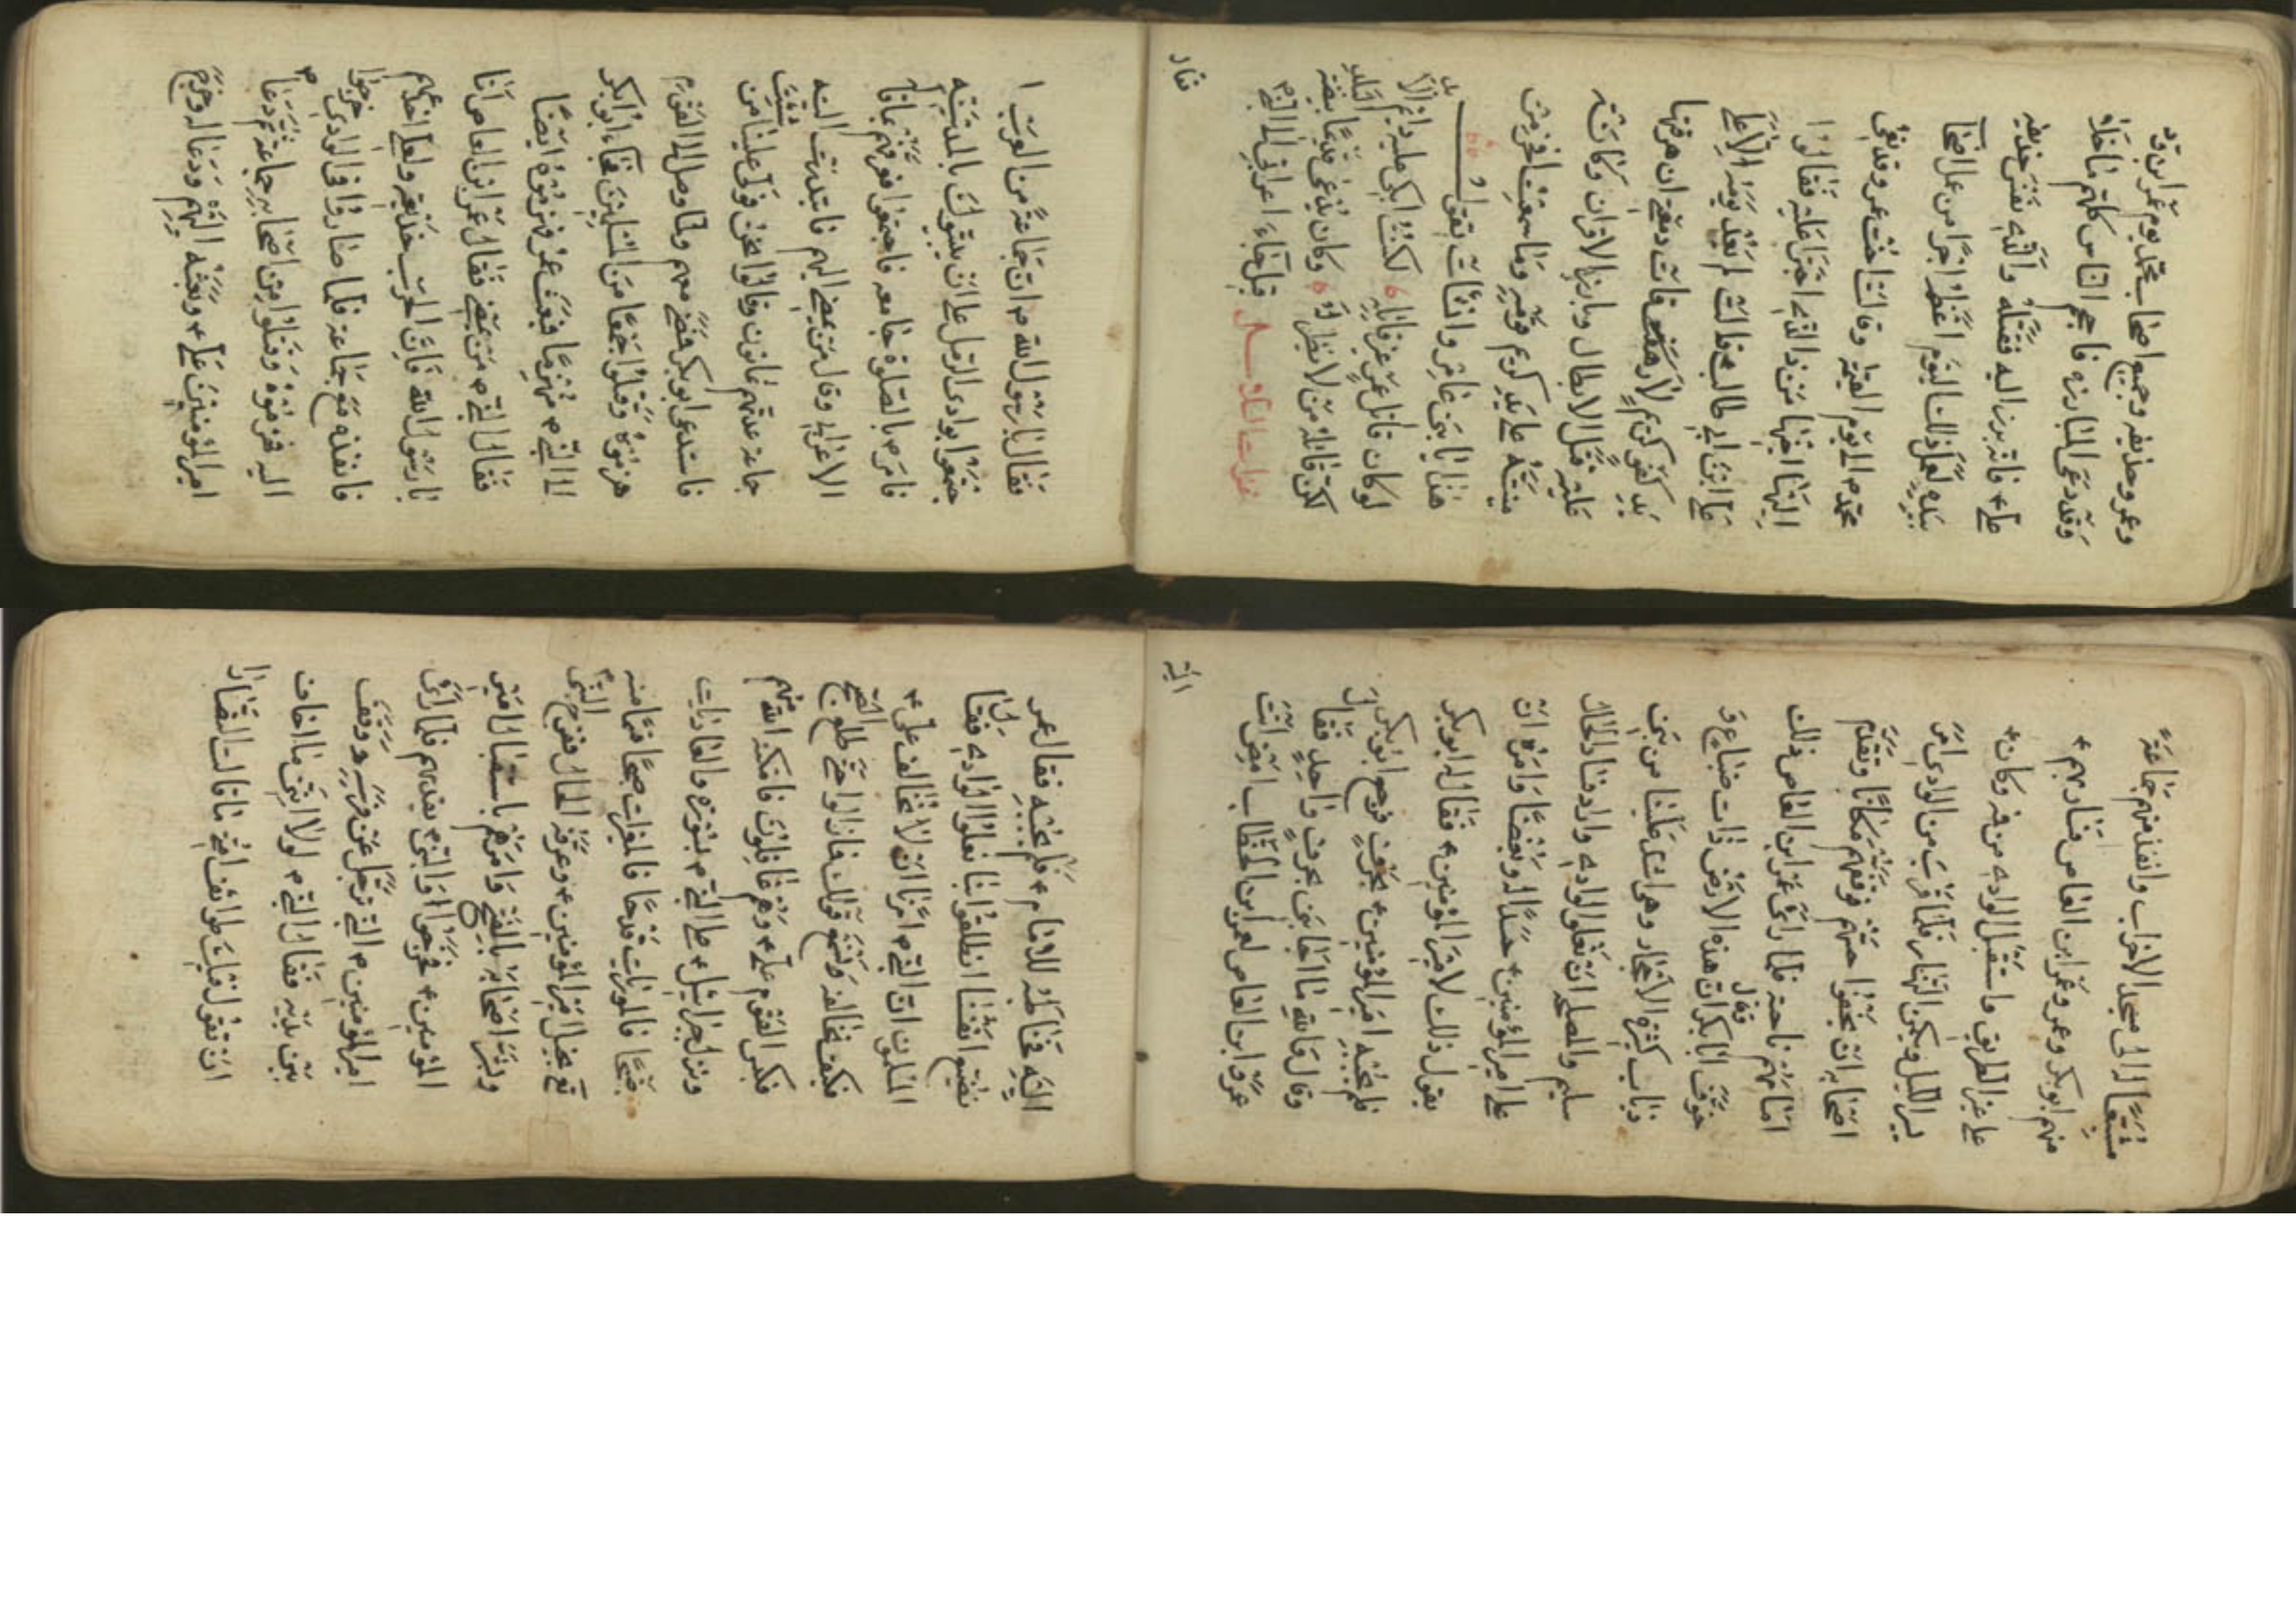 وعمر وحذيفه وجميع اصحاب محمد يوم عمر ابن ود
وقد دعى المبارزه فاحجم الناس كلهم ما خلا
علي ع فانه برز اليه فقتله والذي نفس حذيفه
بيده لعمله ذلك اليوم اعظم اجرا من عمل اصحاب
محمد ص الى يوم القيمة وقالت اخت عمر وقد نعى
اليها اخيها من ذا الذي اجترا عليه فقالوا
علي ابن ابي طالب فقالت لم يعد يومه الا على
يد كفو كريم لا رقت دمعتي ان هرقتها
عليه قتل الابطال وبارز الاقران وكانت
منيته على يد كريم قومه وما سمعت افخر من
هذا يا بني عامر وانشات تقول
لو كان قاتل عمرو غير قاتله لكنت ابكي عليه دائم الابد
لكن قاتله من لا نظير له وكان يدعى قديما بيضة البلد
غزات السلاسل قيل جاء اعرابي الى النبي ص
فقال
فقال يا رسول الله ص ان جماعة من العرب ا
جتمعوا بوادي الرمل على ان يبيتوك بالمدينه
فامر ص بالصلوة جامعه فاجتمعوا فعرفهم مقاله
الاعرابي وقال من يمضي اليهم فابتدرت الصفه
جماعة عدتهم ثمانون وقالوا نحن وول علينا من شئت
فاستدعى ابو بكر فمضى معهم ولما وصل الى القوم
هزموه وقتلوا جمعا من المسلمين فجاء ابو بكر
الى النبي ص منهزما فبعث عمر فهزموه ايضا
فقال النبي ص من يمضي فقال عمر ابن العاص انا
يا رسول الله فان الحرب خديعة ولعلي اخدعهم
فانفذه مع جماعة فلما صاروا في الوادي خرجوا
اليه فهزموه وقتلوا من اصحابه جماعة ثم دعا ص
امير المؤمنين علي ع وبعثه اليهم ودعا له وخرج
مشيعا له الى مسجد الاحزاب وانفذ منهم جماعة
منهم ابو بكر وعمر وعمر ابن العاص فسار بهم ع
على غير الطريق واستقبل الوادي من فمه وكان ع
يسير الليل ويكمن النهار فلما قرب من الوادي امر
اصحابه ان يخففوا حسهم فوقفهم مكانا وتقدم
امامهم ناحية فلما راى عمر ابن العاص ذلك
خوف ابا بكر فقال ان هذه الارض ذات ضباع و
ذياب كثيرة الاحجار وهو اشد علينا من بني
سليم والمصلحة ان نعلوا الوادي واراد فساد الحال
على امير المؤمنين ع حسدا له وبغضا وامره ان
يقول ذلك لامير المؤمنين ع فقال له ابو بكر
فلم يجبه امير المؤمنين ع بحرف فرجع ابو بكر
وقال والله ما اجابني بحرف واحد فقال
عمرو ابن العاص لعمر بن الخطاب امض انت
اليه
اليه فخاطبه للامام ع فلم يجبه فقال عمر
نضيع انفسنا انطلقوا بنا نعلوا الوادي فقال
المسلمون ان النبي ص امرنا ان لا نخالف علي ع
فكيف نخالفه ونسمع قولك فما زالوا حتى طلوع الفجر
فكبس القوم علي ع وهم غافلون فامكنه الله منهم
ونزل جبرائيل ع على النبي ص بسورة والعاديات
ضبحا فالموريات قدحا فالمغيرات صبحا قسما منه
تع بخيل امير المؤمنين ع وعرفه الحال ففرح النبي ص
وبشر اصحابه بالفتح وامرهم باستقبال امير
المؤمنين ع فخرجوا والنبي ص يقدمهم فلما راى
امير المؤمنين ع النبي ترجل عن فرسه ووقف
بين يديه فقال النبي ص لولا انني ما اخاف
ان تقول فيك طوائف امتي ما قالت النصارى